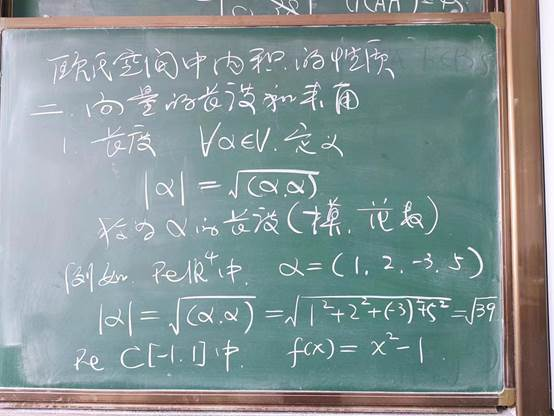 欧氏空间中内积的性质
二、向量的长度和夹角
1. 长度 ∀α∈V, 定义
|α| = √(α,α)
称为 α 的长度(模、范数)
例如, 在ℝ⁴中, α = (1, 2, -3, 5)
|α| = √(α,α) = √1²+2²+(-3)²+5² = √39
在 C[-1,1]中, f(x) = x²-1